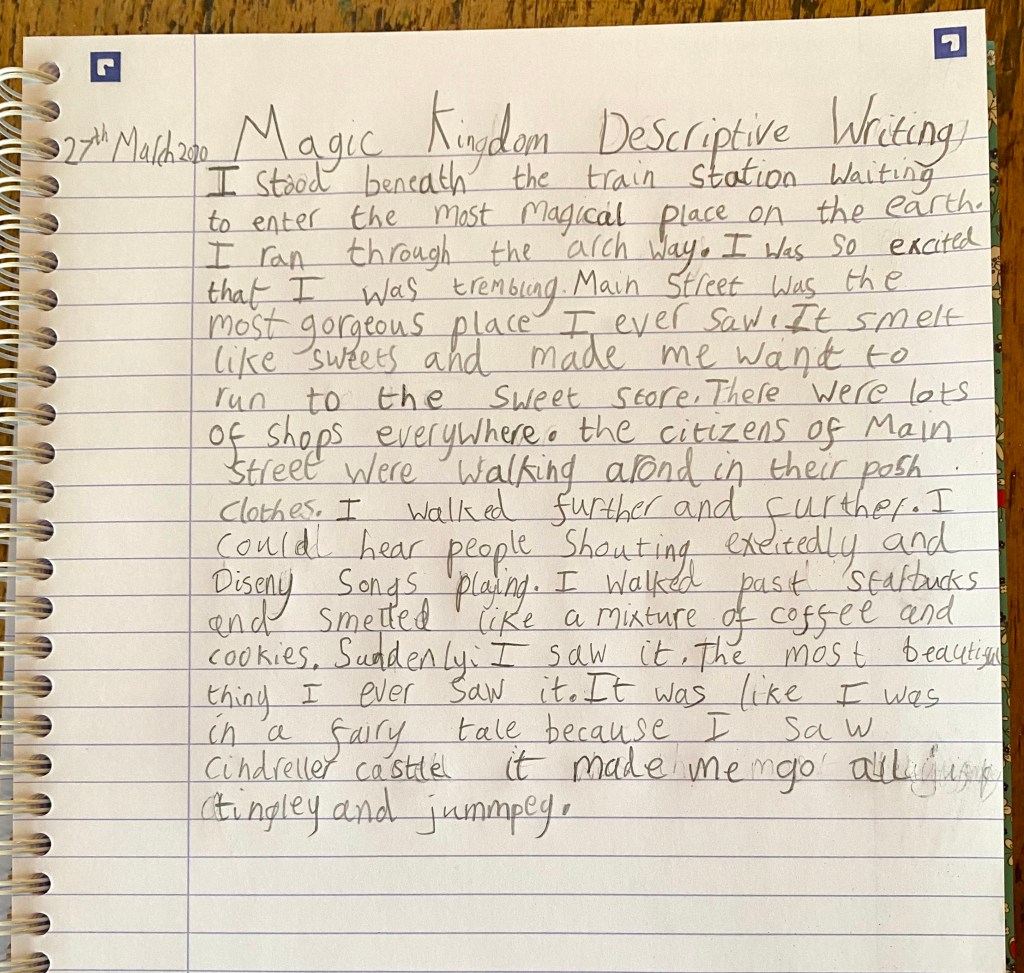 27th March 2020 Magic Kingdom Descriptive Writing
I stood beneath the train station waiting
to enter the most magical place on the earth.
I ran through the arch way. I was so excited
that I was trembling. Main Street was the
most gorgeous place I ever saw. It smelt
like sweets and made me want to
run to the sweet store. There were lots
of shops everywhere. the citizens of Main
street were walking arond in their posh
clothes. I walked further and further. I
could hear people shouting excitedly and
Diseny songs playing. I walked past starbucks
and smelled like a mixture of coffee and
cookies. Suddenly: I saw it. The most beautiful
thing I ever saw it. It was like I was
in a fairy tale because I saw
cindreller castle it made me go all
tingley and jummpey.